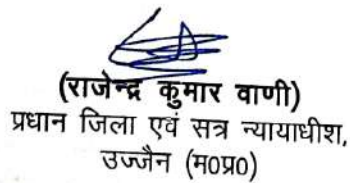 (राजेन्द्र कुमार वाणी)
प्रधान जिला एवं सत्र न्यायाधीश,
उज्जैन (म०प्र०)